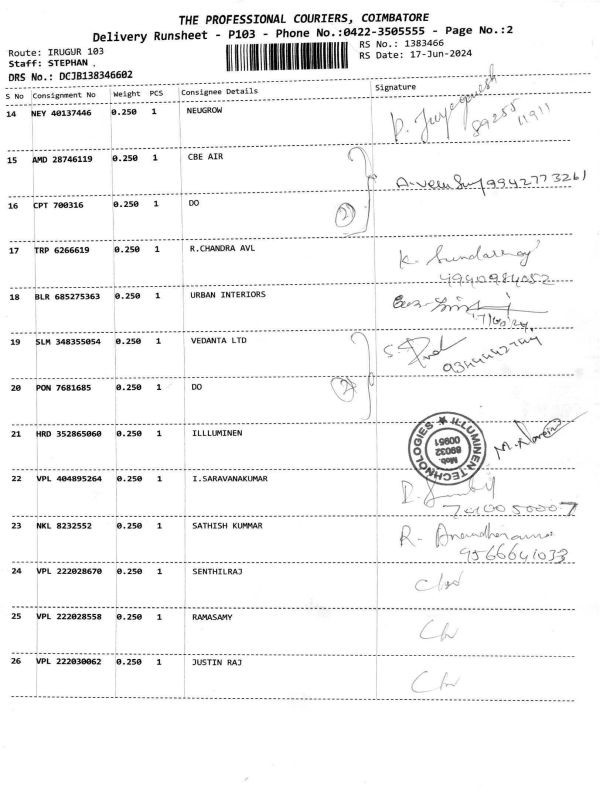 THE PROFESSIONAL COURIERS, COIMBATORE
Delivery Runsheet - P103 - Phone No.:0422-3505555 - Page No.:2
Route: IRUGUR 103
RS No.: 1383466
Staff: STEPHAN .
RS Date: 17-Jun-2024
DRS No.: DCJB138346602
S No Consignment No Weight PCS Consignee Details Signature
14 NEY 40137446 0.250 1 NEUGROW
89255 11911
15 AMD 28746119 0.250 1 CBE AIR
9942773261
16 CPT 700316 0.250 1 DO
2
17 TRP 6266619 0.250 1 R.CHANDRA AVL
K.
18 BLR 685275363 0.250 1 URBAN INTERIORS
19 SLM 348355054 0.250 1 VEDANTA LTD
S.
20 PON 7681685 0.250 1 DO
2
21 HRD 352865060 0.250 1 ILLLUMINEN
ILLUMINEN TECHNOLOGIES
Mob.
89032
00951
M.
22 VPL 404895264 0.250 1 I.SARAVANAKUMAR
23 NKL 8232552 0.250 1 SATHISH KUMMAR
R.
9566641033
24 VPL 222028670 0.250 1 SENTHILRAJ
25 VPL 222028558 0.250 1 RAMASAMY
26 VPL 222030062 0.250 1 JUSTIN RAJ